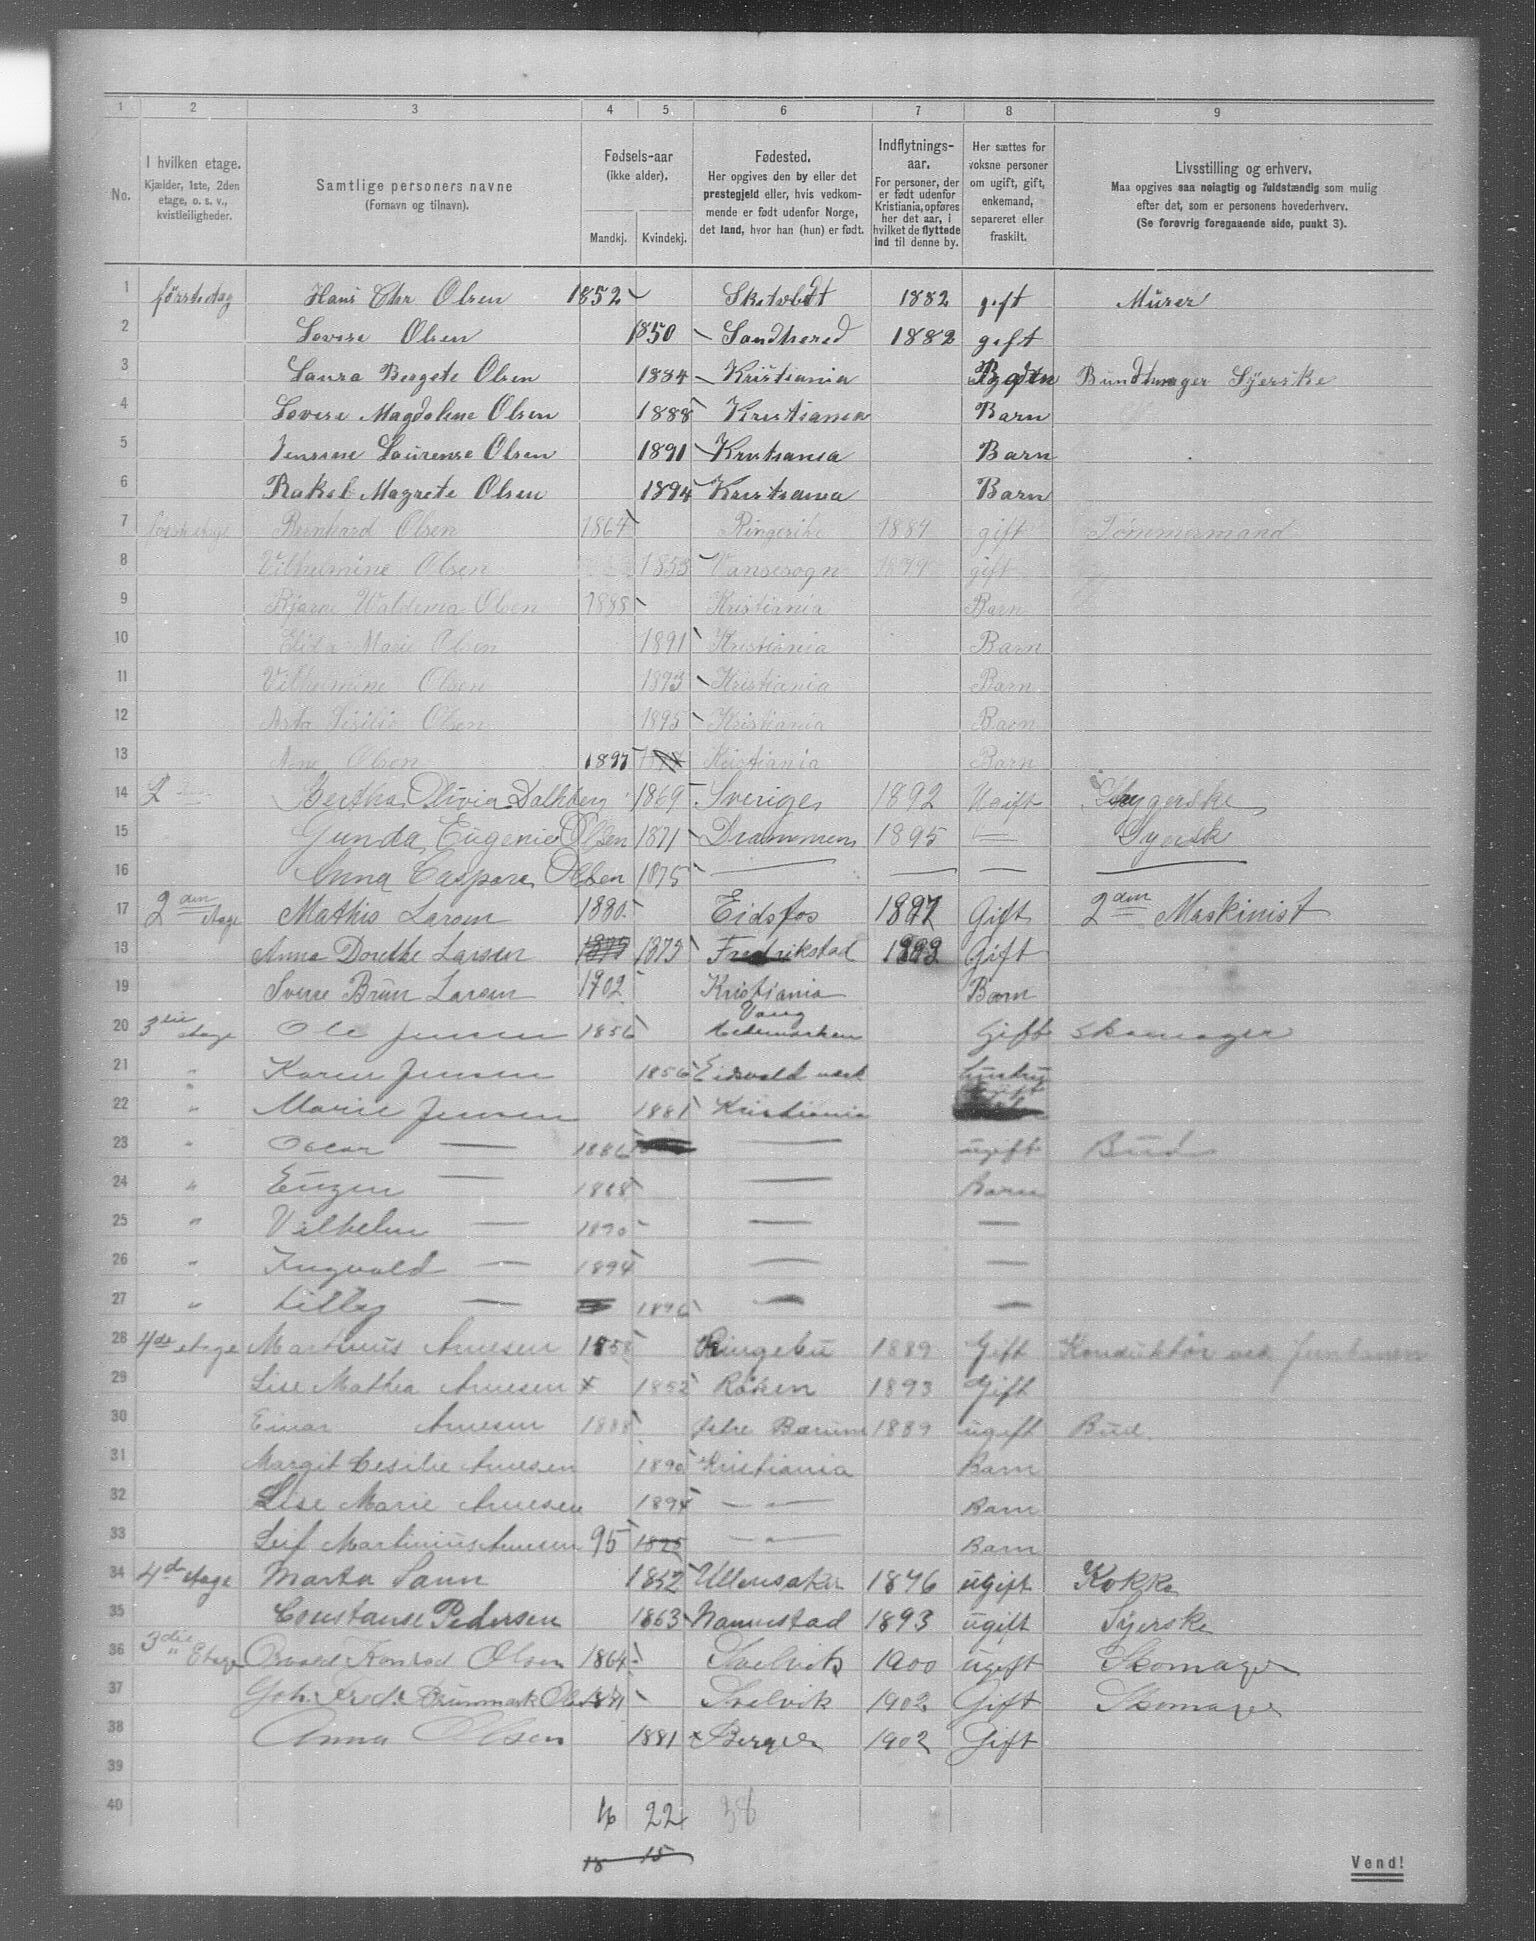 1 2 3 4 5 6 7 8 9
No.
I hvilken etage.
Kjælder, 1ste, 2den
etage, o. s. v.,
kvistleiligheder.
Samtlige personers navne
(Fornavn og tilnavn).
Fødsels-aar
(ikke alder).
Mandkj. Kvindekj.
Fødested.
Her opgives den by eller det
prestegjeld eller, hvis vedkom-
mende er født udenfor Norge,
det land, hvor han (hun) er født.
Indflytnings-
aar.
For personer, der
er født udenfor
Kristiania, opføres
her det aar, i
hvilket de flyttede
ind til denne by.
Her sættes for
voksne personer
om ugift, gift,
enkemand,
separeret eller
fraskilt.
Livsstilling og erhverv.
Maa opgives saa nøiagtig og fuldstændig som mulig
efter det, som er personens hovederhverv.
(Se forøvrig foregaaende side, punkt 3).
1 Hans Chr Olsen 1852 1882 gift Murer
2 Lovise Olsen 1850 Sandhered 1882 gift
3 Laura Bergete Olsen 1884 Kristiania Bundtmager Syerske
4 Lovise Magdalene Olsen 1888 Kristiania Barn
5 Laurense Olsen 1891 Kristiania Barn
6 Rakel Magrete Olsen 1894 Kristiania Barn
7 Bernhard Olsen 1864 Ringerike 1884 gift Tømmermand
8 Vilhelmine Olsen 1853 Vansesogn gift
9 Bjarne Waldema Olsen 1888 Kristiania Barn
10 Elida Marie Olsen 1891 Kristiania Barn
11 Vilhelmine Olsen 1893 Kristiania Barn
12 Olsen 1895 Kristiania Barn
13 Arne Olsen 1897 Kristiania Barn
14 2 Bertha Olivia Dalhberg 1869 Sverige 1892 Ugift
15 Gunda Eugenie Olsen 1871 Drammen 1895 — Syersk
16 Anna Caspara Olsen 1875 — — — —
17 2den Etage Mathis Larsen 1880 Eidsfos 1897 Gift 2den Maskinist
18 Anna Dorethe Larsen 1875 Fredrikstad Gift
19 Sverre Brun Larsen 1902 Kristiania Barn
20 3die etage Ole Jensen 1856 Vang Hedemarken Gift Skomager
21 " Karen Jensen 1856 Eidsvold værk hustru
22 " Marie Jensen 1881 Kristiania
23 " Oscar — 1886 — ugift Bud
24 " Eugen — 1888 — Barn
25 " Vilhelm — 1890 — —
26 " Ingvald — 1894 — —
27 " Lilly — 1896 — —
28 4de etage Martinus Arnesen 1858 Ringebu 1889 Gift Konduktør ved
29 Lise Mathea Arnesen x 1852 Røken 1893 Gift
30 Einar Arnesen 1888 Bærum 1889 ugift Bud
31 Margit Cesilie Arnesen 1890 Kristiania Barn
32 Lise Marie Arnesen 1894 — " — Barn
33 Leif Martinius Arnesen 95 1895 — " — Barn
34 4de etage Marta 1852 Ullensaker 1876 ugift Kokke
35 Constanse Pedersen 1863 Nannestad 1893 ugift Syerske
36 3die Etage Konrad Olsen 1864 Svelvik 1900 ugift Skomager
37 Joh. Brunmark Olsen Svelvik 1902 Gift Skomager
38 Anna Olsen 1881 x Berger 1902 Gift
39
40 16 22 38
18 15
Vend!